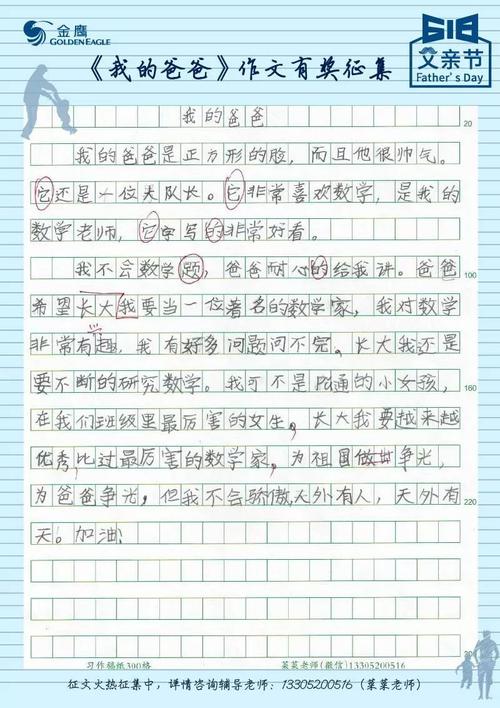 金鹰
GOLDEN EAGLE
618
父亲节
Father's Day
《我的爸爸》作文有奖征集
我的爸爸
20
我的爸爸是正方形的脸，而且他很帅气。
它还是一位大队长。它非常喜欢数学，是我的
数学老师，它字写的非常好看。
我不会数学题，爸爸耐心的给我讲。爸爸
100
希望长大我要当一位著名的数学家，我对数学
非常有趣，我有好多问题问不完。长大我还是
要不断的研究数学。我可不是普通的小女孩，
160
在我们班级里最厉害的女生，长大我要越来越
优秀，比过最厉害的数学家，为祖国做世争光，
为爸爸争光，但我不会骄傲人外有人，天外有
220
天。加油！
习作稿纸300格
菜菜老师(微信)13305200516
征文火热征集中，详情咨询辅导老师：13305200516（菜菜老师）